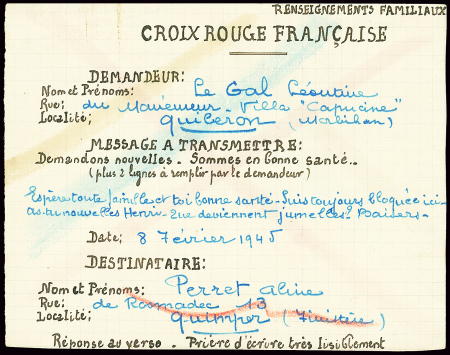 RENSEIGNEMENTS FAMILIAUX
CROIX ROUGE FRANÇAISE
DEMANDEUR:
Nom et Prénoms: Le Gal Léontine
Rue: du Manémeur - Villa "Capucine"
Localité; Quiberon (Morbihan)
MESSAGE A TRANSMETTRE:
Demandons nouvelles. Sommes en bonne santé..
(plus 2 lignes à remplir par le demandeur)
Espère toute famille et toi bonne santé - Suis toujours bloquée ici -
as-tu nouvelles Henri - Que deviennent jumelles? Baisers -
Date; 8 Février 1945
DESTINATAIRE:
Nom et Prénoms: Perret Aline
Rue: de Rosmadec 13
Localité: Quimper (Finistère)
Réponse au verso. Prière d'écrire très lisiblement